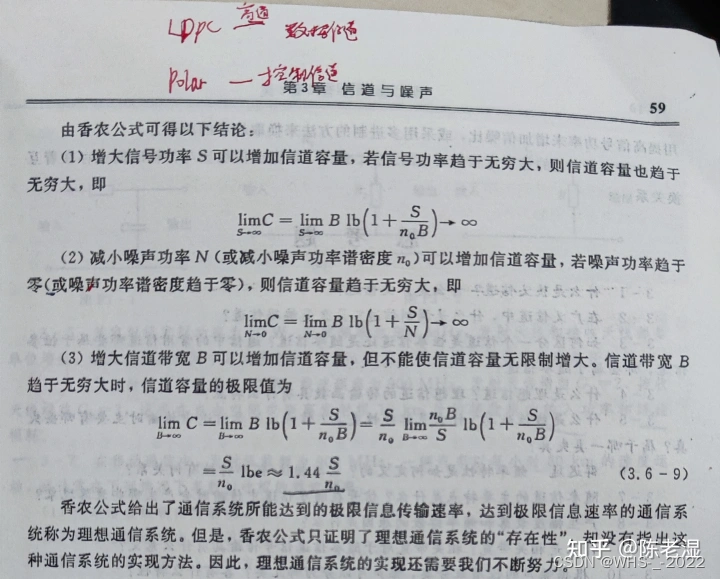 LDPC 高通 数据信道
Polar — 控制信道
第3章 信道与噪声
59
由香农公式可得以下结论：
（1）增大信号功率 S 可以增加信道容量，若信号功率趋于无穷大，则信道容量也趋于
无穷大，即
lim_{S→∞} C = lim_{S→∞} B lb(1 + S/(n₀B)) → ∞
（2）减小噪声功率 N（或减小噪声功率谱密度 n₀）可以增加信道容量，若噪声功率趋于
零（或噪声功率谱密度趋于零），则信道容量趋于无穷大，即
lim_{N→0} C = lim_{N→0} B lb(1 + S/N) → ∞
（3）增大信道带宽 B 可以增加信道容量，但不能使信道容量无限制增大。信道带宽 B
趋于无穷大时，信道容量的极限值为
lim_{B→∞} C = lim_{B→∞} B lb(1 + S/(n₀B)) = S/n₀ lim_{B→∞} n₀B/S lb(1 + S/(n₀B))
= S/n₀ lbe ≈ 1.44 S/n₀ (3.6-9)
香农公式给出了通信系统所能达到的极限信息传输速率，达到极限信息速率的通信系
统称为理想通信系统。但是，香农公式只证明了理想通信系统的“存在性”，却没有指出这
种通信系统的实现方法。因此，理想通信系统的实现还需要我们不断努力。
知乎 @陈老湿
CSDN @WHS-_-2022